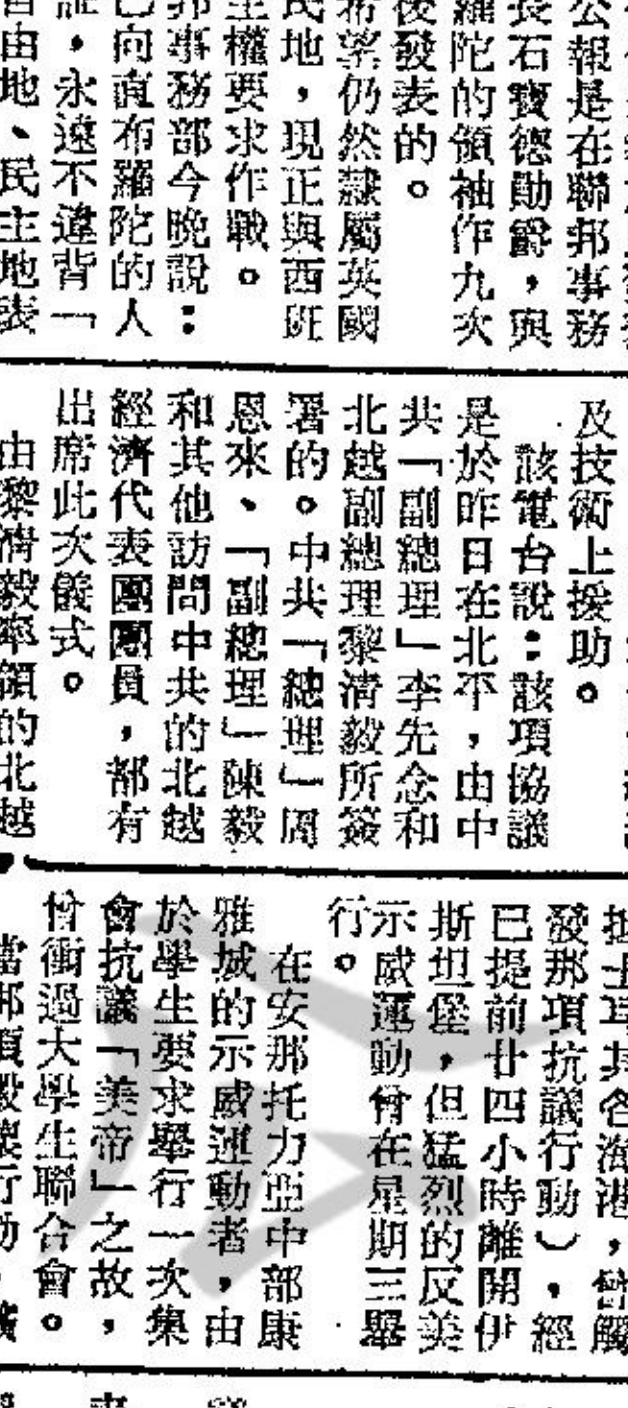 公報是在聯邦事務
長石寶德勛爵，與
羅陀的領袖作九次
後發表的。
希望仍然隸屬英國
民地，現正與西班
主權要求作戰。
邦事務部今晚說：
已向直布羅陀的人
証，永遠不違背「
自由地、民主地表
及技術上援助。
該電台說：該項協議
是於昨日在北平，由中
共「副總理」李先念和
北越副總理黎清毅所簽
署的。中共「總理」周
恩來、「副總理」陳毅
和其他訪問中共的北越
經濟代表團團員，都有
出席此次儀式。
由黎清毅率領的北越
發那項抗議行動），經
已提前廿四小時離開伊
斯坦堡，但猛烈的反美
示威運動曾在星期三舉
行。
在安那托力亞中部康
雅城的示威運動者，由
於學生要求舉行一次集
會抗議「美帝」之故，
曾衝過大學生聯合會。